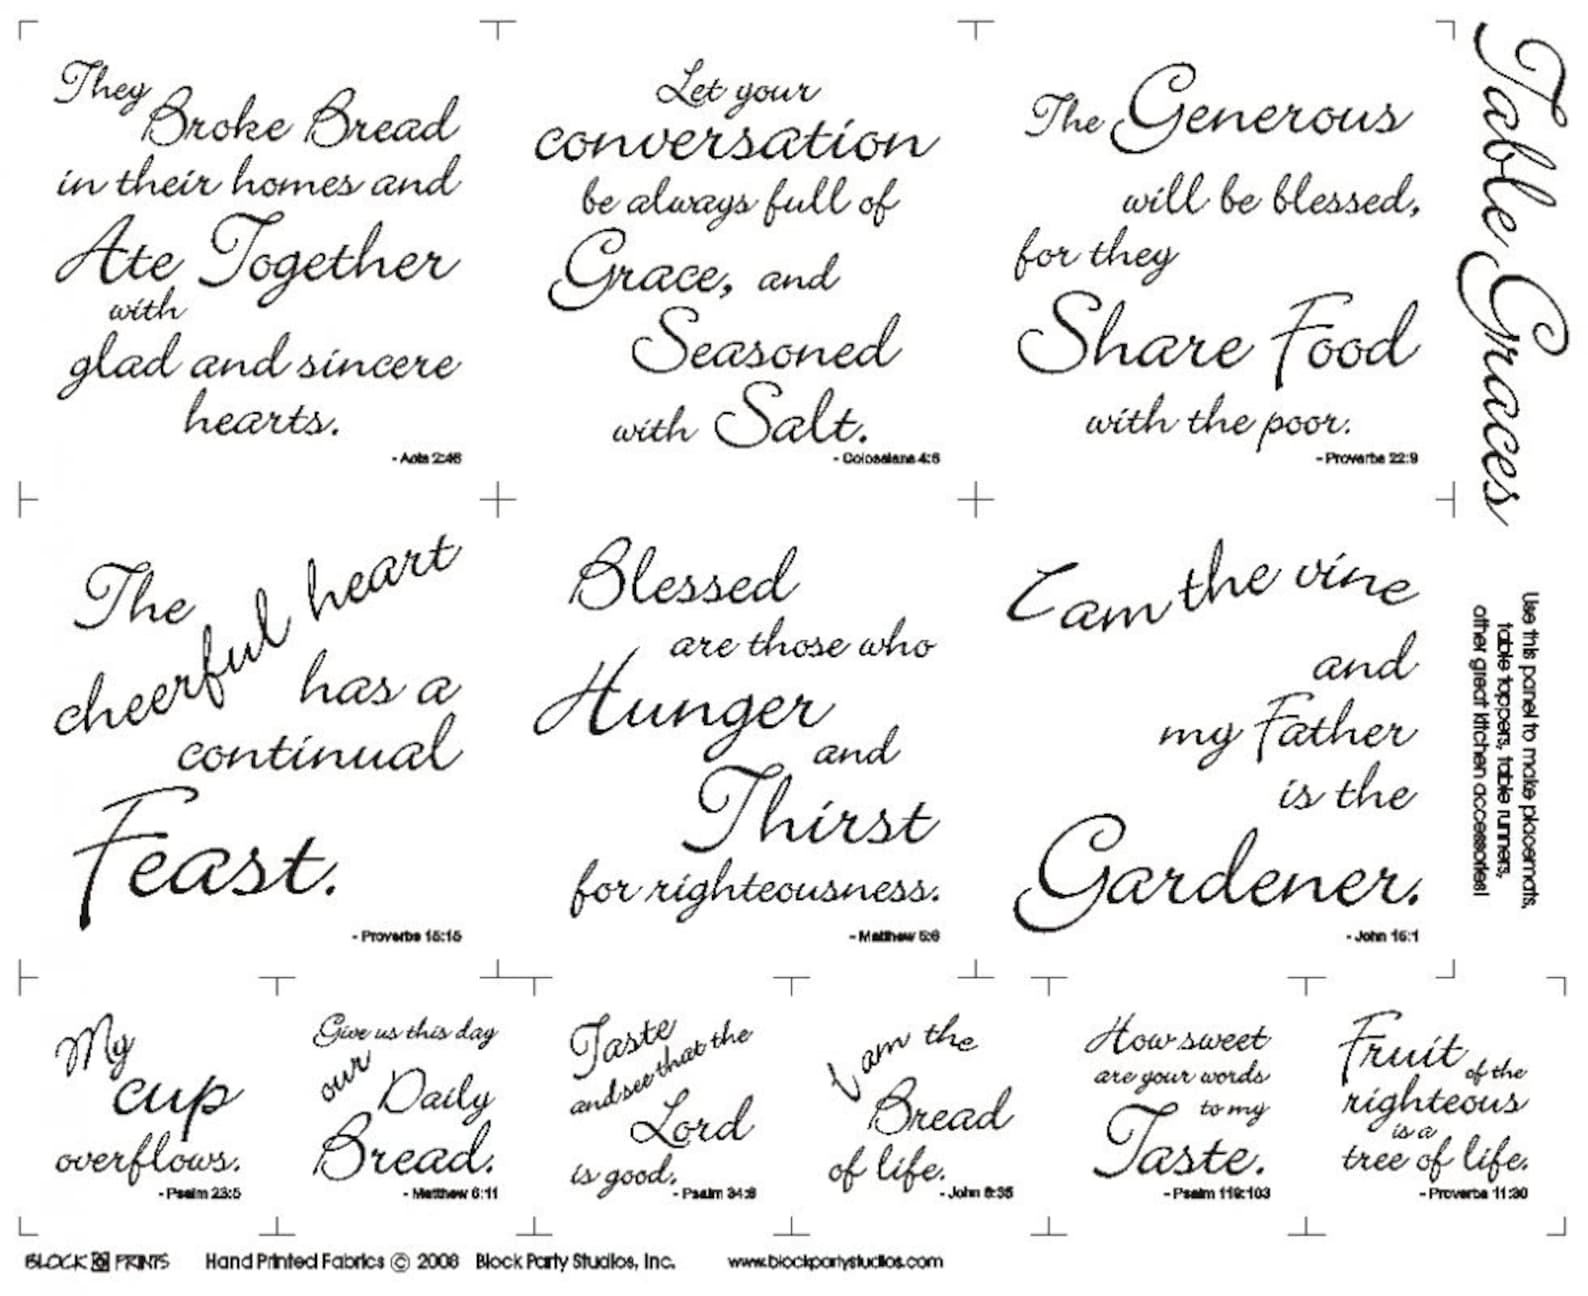 They
Broke Bread
in their homes and
Ate Together
with
glad and sincere
hearts.
- Acts 2:46
Let your
conversation
be always full of
Grace, and
Seasoned
with Salt.
- Colossians 4:6
The Generous
will be blessed,
for they
Share Food
with the poor.
- Proverbs 22:9
Table Graces
The
cheerful heart
has a
continual
Feast.
- Proverbs 15:15
Blessed
are those who
Hunger
and
Thirst
for righteousness.
- Matthew 5:6
I am the vine
and
my Father
is the
Gardener.
- John 15:1
Use this panel to make placemats,
table toppers, table runners,
other great kitchen accessories!
My
cup
overflows.
- Psalm 23:5
Give us this day
our Daily
Bread.
- Matthew 6:11
Taste
and see that the
Lord
is good.
- Psalm 34:8
I am the
Bread
of life.
- John 6:35
How sweet
are your words
to my
Taste.
- Psalm 119:103
Fruit of the
righteous
is a
tree of life.
- Proverbs 11:30
BLOCK PRINTS Hand Printed Fabrics © 2008 Block Party Studios, Inc. www.blockpartystudios.com